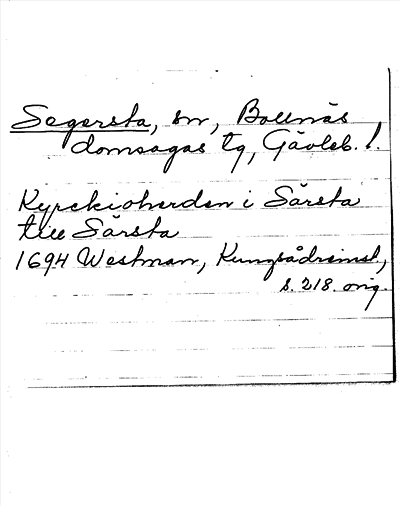 Segersta, sn, Bollnäs
domsagas tg, Gävleb. l.
Kyrckioherden i Särsta
till Särsta
1694 Westman, Kungsådreinst,
s. 218. orig.